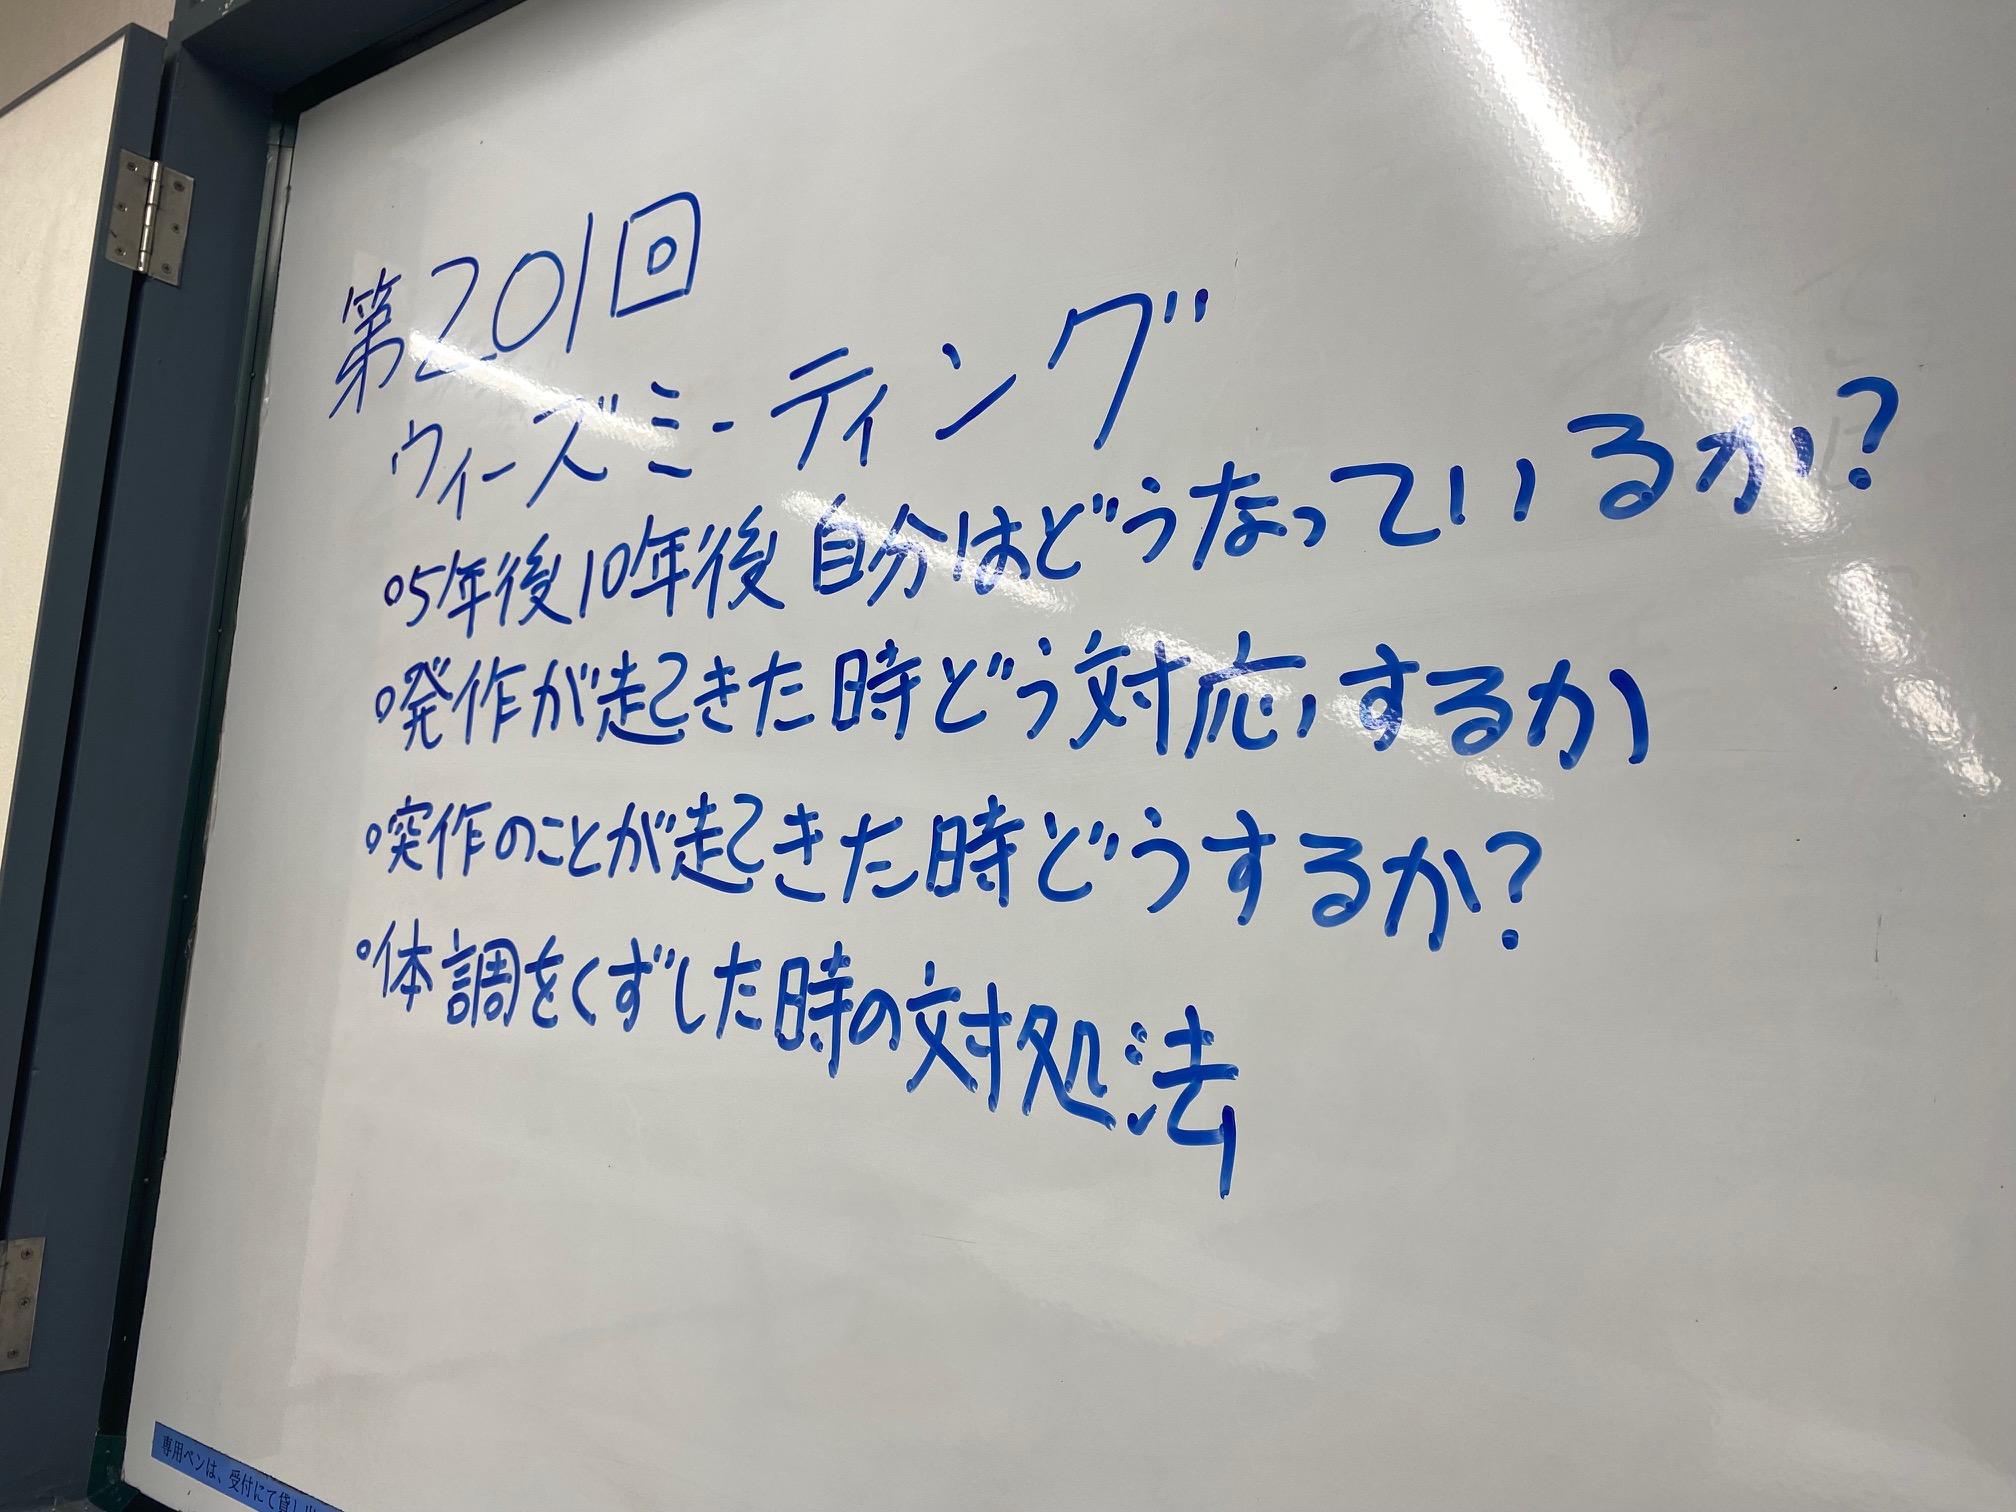 第201回
ウィーズミーティング
°5年後10年後自分はどうなっているか?
°発作が起きた時どう対応するか
°突作のことが起きた時どうするか?
°体調をくずした時の対処法
専用ペンは、受付にて貸し出